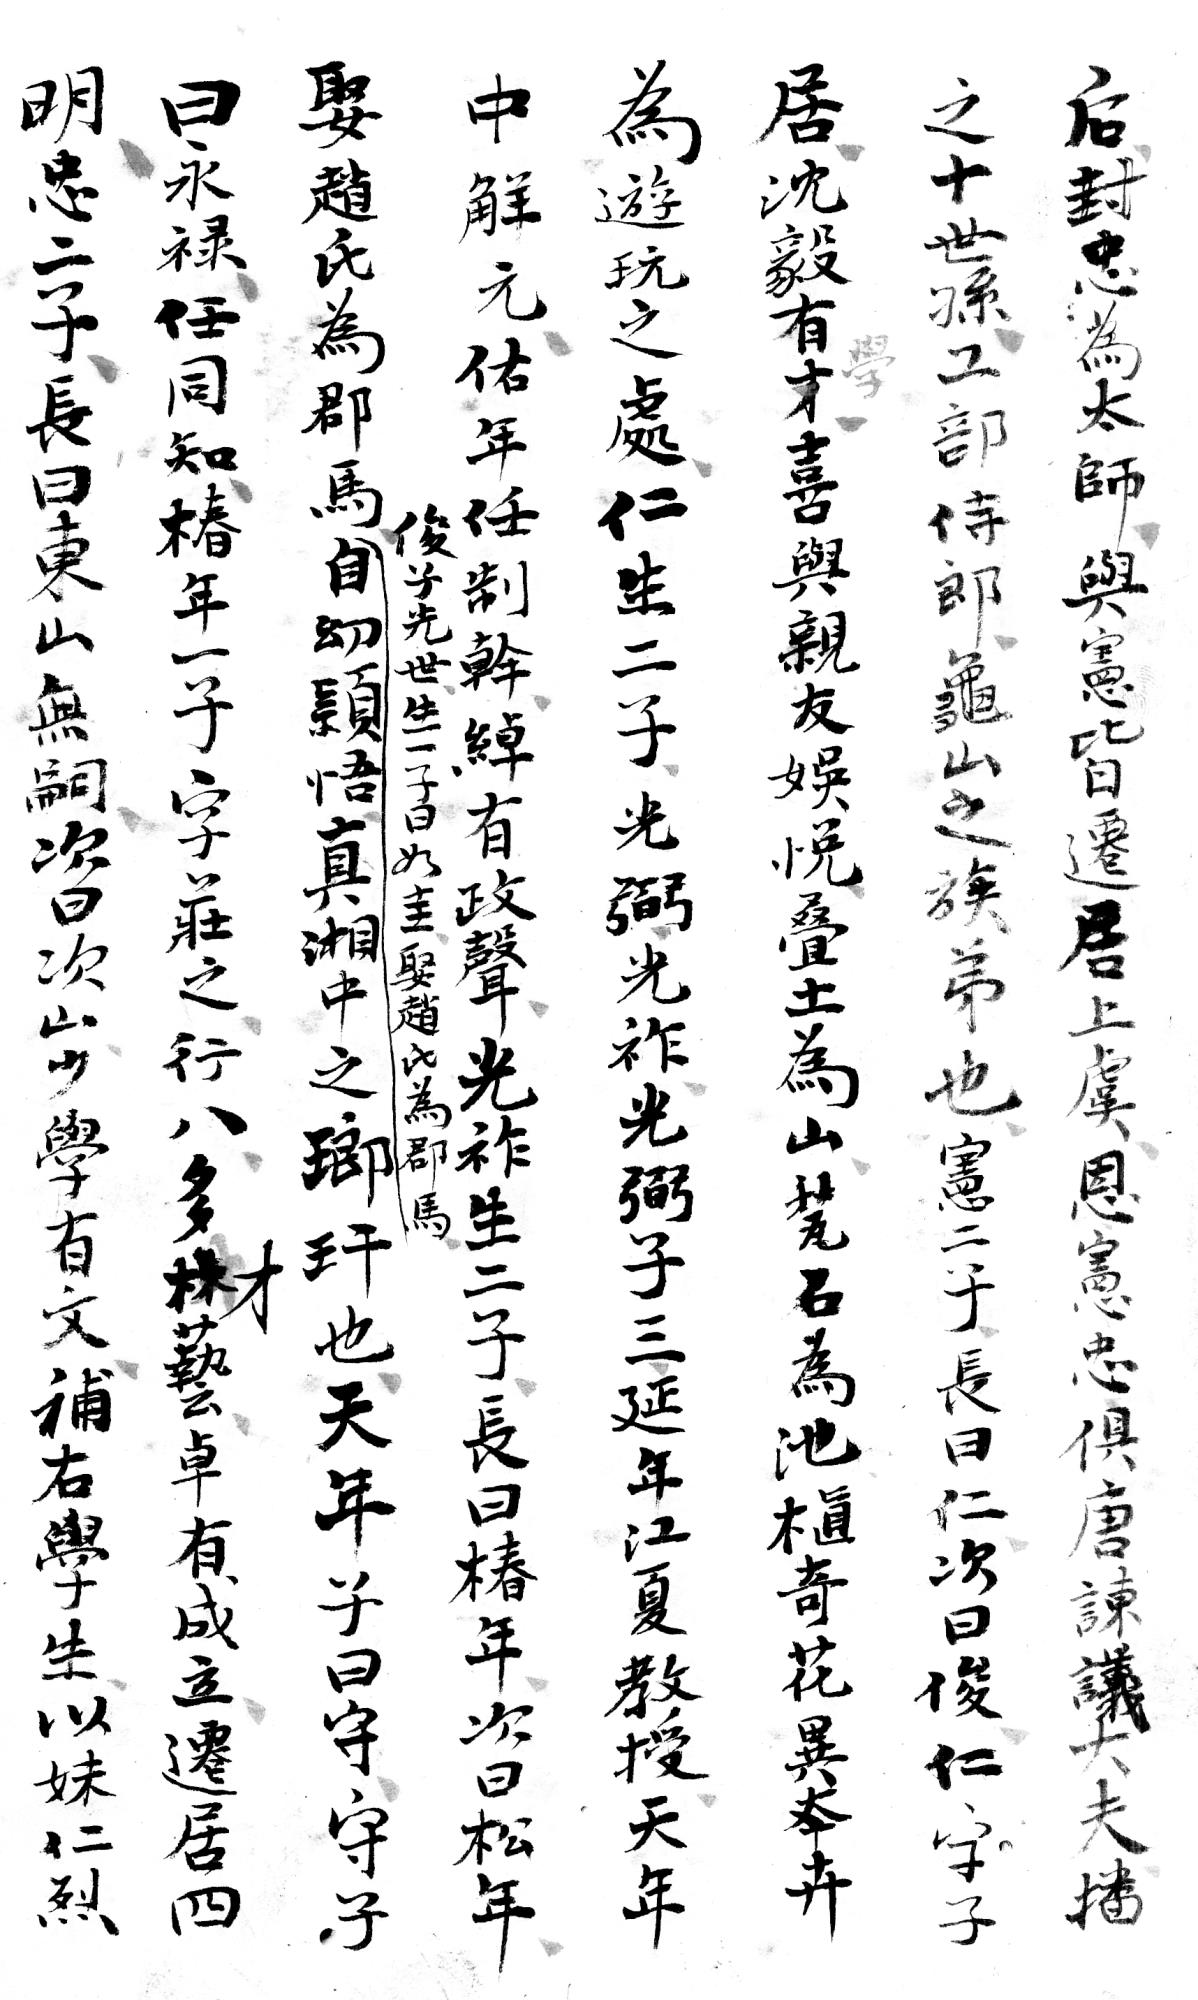 后封忠為太師與憲皆遷居上虞恩憲忠俱唐諫議大夫播
之十世孫工部侍郎龜山之族弟也憲二子長曰仁次曰俊仁字子
居沈毅有才學喜與親友娛悅疊土為山甃石為池植奇花異卉
為遊玩之處仁生二子光弼光祚光弼子三延年江夏教授天年
中解元佑年任制幹綽有政聲光祚生二子長曰椿年次曰松年
俊子光世生一子曰必圭娶趙氏為郡馬
娶趙氏為郡馬自幼穎悟真湘中之瑯玕也天年子曰守守子
曰永禄任同知椿年一子字莊之行八多才藝卓有成立遷居四
明忠二子長曰東山無嗣次曰次山少學有文補右學生以妹仁烈